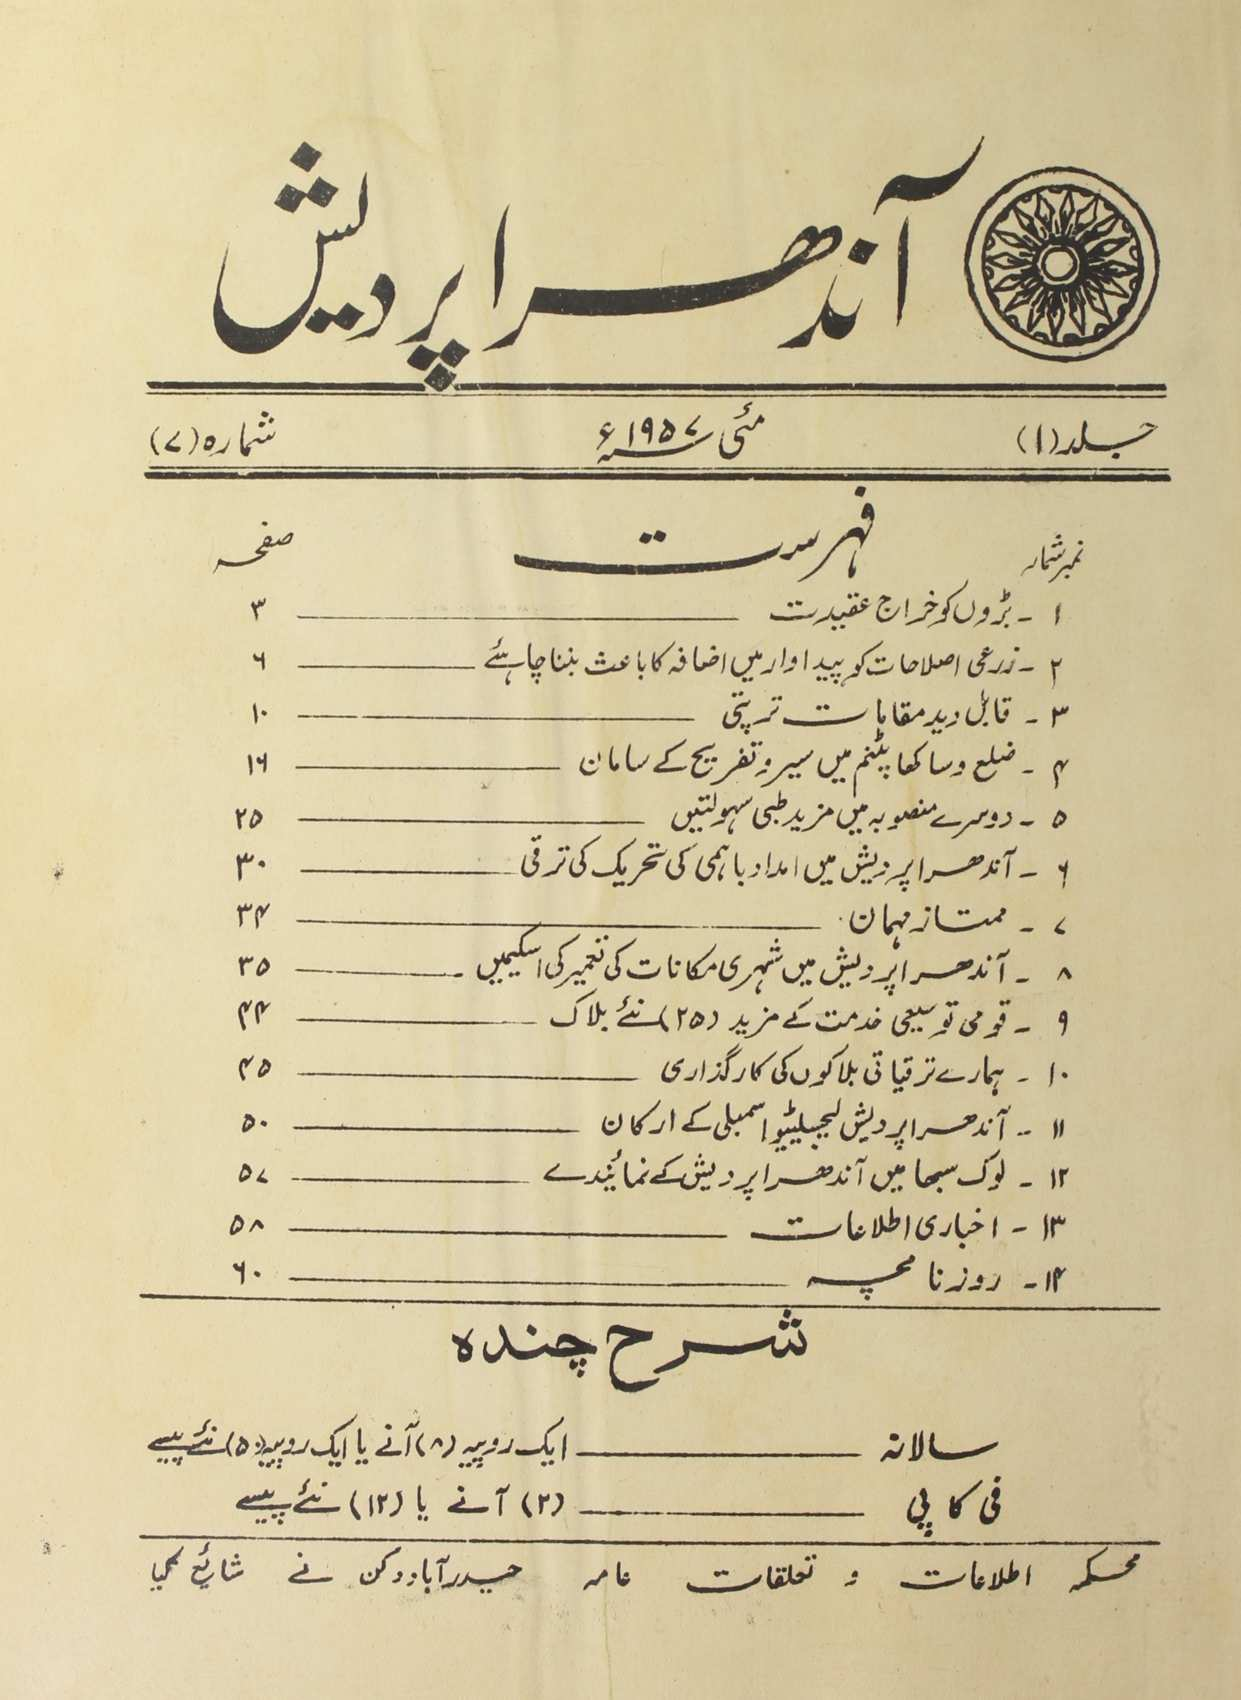 آندھرا پردیش
جلد (۱) مئی سنہ ۱۹۵۷ء شمارہ (۷)
فہرست
نمبر شمار صفحہ
۱ - بڑوں کو خراج عقیدت ۳
۲ - زرعی اصلاحات کو پیداوار میں اضافہ کا باعث بننا چاہئے ۶
۳ - قابل دید مقامات ترپتی ۱۰
۴ - ضلع وساکھاپٹنم میں سیر و تفریح کے سامان ۱۶
۵ - دوسرے منصوبہ میں مزید طبی سہولتیں ۲۵
۶ - آندھرا پردیش میں امداد باہمی کی تحریک کی ترقی ۳۰
۷ - ممتاز مہمان ۳۴
۸ - آندھرا پردیش میں شہری مکانات کی تعمیر کی اسکیمیں ۳۵
۹ - قومی توسیعی خدمت کے مزید (۲۵) نئے بلاک ۴۴
۱۰ - ہمارے ترقیاتی بلاکوں کی کارگذاری ۴۵
۱۱ - آندھرا پردیش لیجسلیٹیو اسمبلی کے ارکان ۵۰
۱۲ - لوک سبھا میں آندھرا پردیش کے نمائیندے ۵۷
۱۳ - اخباری اطلاعات ۵۸
۱۴ - روزنامچہ ۶۰
شرح چندہ
سالانہ ایک روپیہ (۸) آنے یا ایک روپیہ (۵۰) نئے پیسے
فی کاپی (۲) آنے یا (۱۲) نئے پیسے
محکمہ اطلاعات و تعلقات عامہ حیدرآباد دکن نے شائع کیا